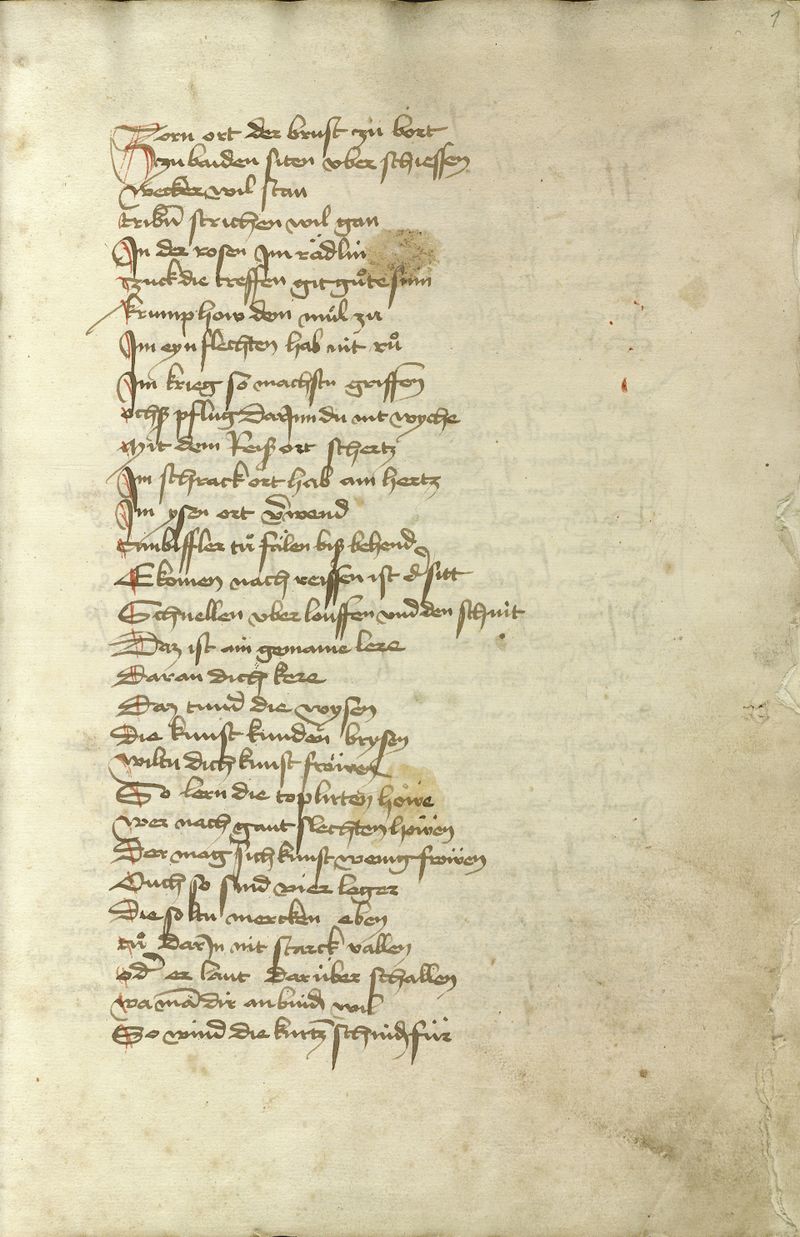 1
Zorn ort der brust zü bort
Zu baiden siten vber schiessen
Wecker wil stan
tribu̅ strichen wil gan
In der rosen Im rädlin
zuck die treffen git gůte sinn
krump how dem mül zu
Im eyn flechten hab nit rů
Im krieg so machstu griffen̅
ochß pflug darInn du nit wyche
Mit dem Reiß ort schertz
Im schrack ort hab ain hertz
Im ysen ort v̅wend
tanbiffler tů fälen biß behend
Ekomen nach reissen ist d sitt
Schnellen vber louffen vnd den schnit
Daz ist ain gemaine lere
Daran dich kere
Daz tund die wysen
Die kunst kunden brysen
wiltu dich kunst fröwen
So lern die toplirten höwe
wer nach gaut slechten höwen
Der mag sich kunst wenig fröwen
Ouch so sind vier leger
Die soltu mercken eben
tů darIn nit starck vallen
od er laut darüber schallen
wa ma̅ dir anbind wil
So wind die kurtz schnid für